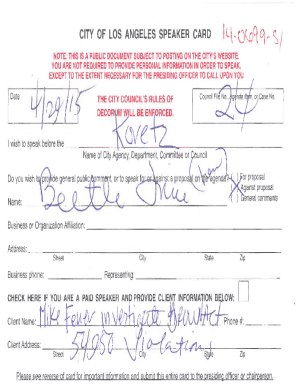 CITY OF LOS ANGELES SPEAKER CARD 14-0099-S1
NOTE: THIS IS A PUBLIC DOCUMENT SUBJECT TO POSTING ON THE CITY'S WEBSITE.
YOU ARE NOT REQUIRED TO PROVIDE PERSONAL INFORMATION IN ORDER TO SPEAK,
EXCEPT TO THE EXTENT NECESSARY FOR THE PRESIDING OFFICER TO CALL UPON YOU.
Date
4/29/15
THE CITY COUNCIL'S RULES OF
DECORUM WILL BE ENFORCED.
Council File No., Agenda Item, or Case No.
24
I wish to speak before the Koretz
Name of City Agency, Department, Committee or Council
Do you wish to provide general public comment, or to speak for or against a proposal on the agenda?
( ) For proposal
( ) Against proposal
( ) General comments
Name: Beetle Juice
Business or Organization Affiliation:
Address:
Street City State Zip
Business phone: Representing:
CHECK HERE IF YOU ARE A PAID SPEAKER AND PROVIDE CLIENT INFORMATION BELOW:
Client Name: Mike Feuer investigate Brown Act Phone #:
Client Address: 54950 Violations
Street City State Zip
Please see reverse of card for important information and submit this entire card to the presiding officer or chairperson.